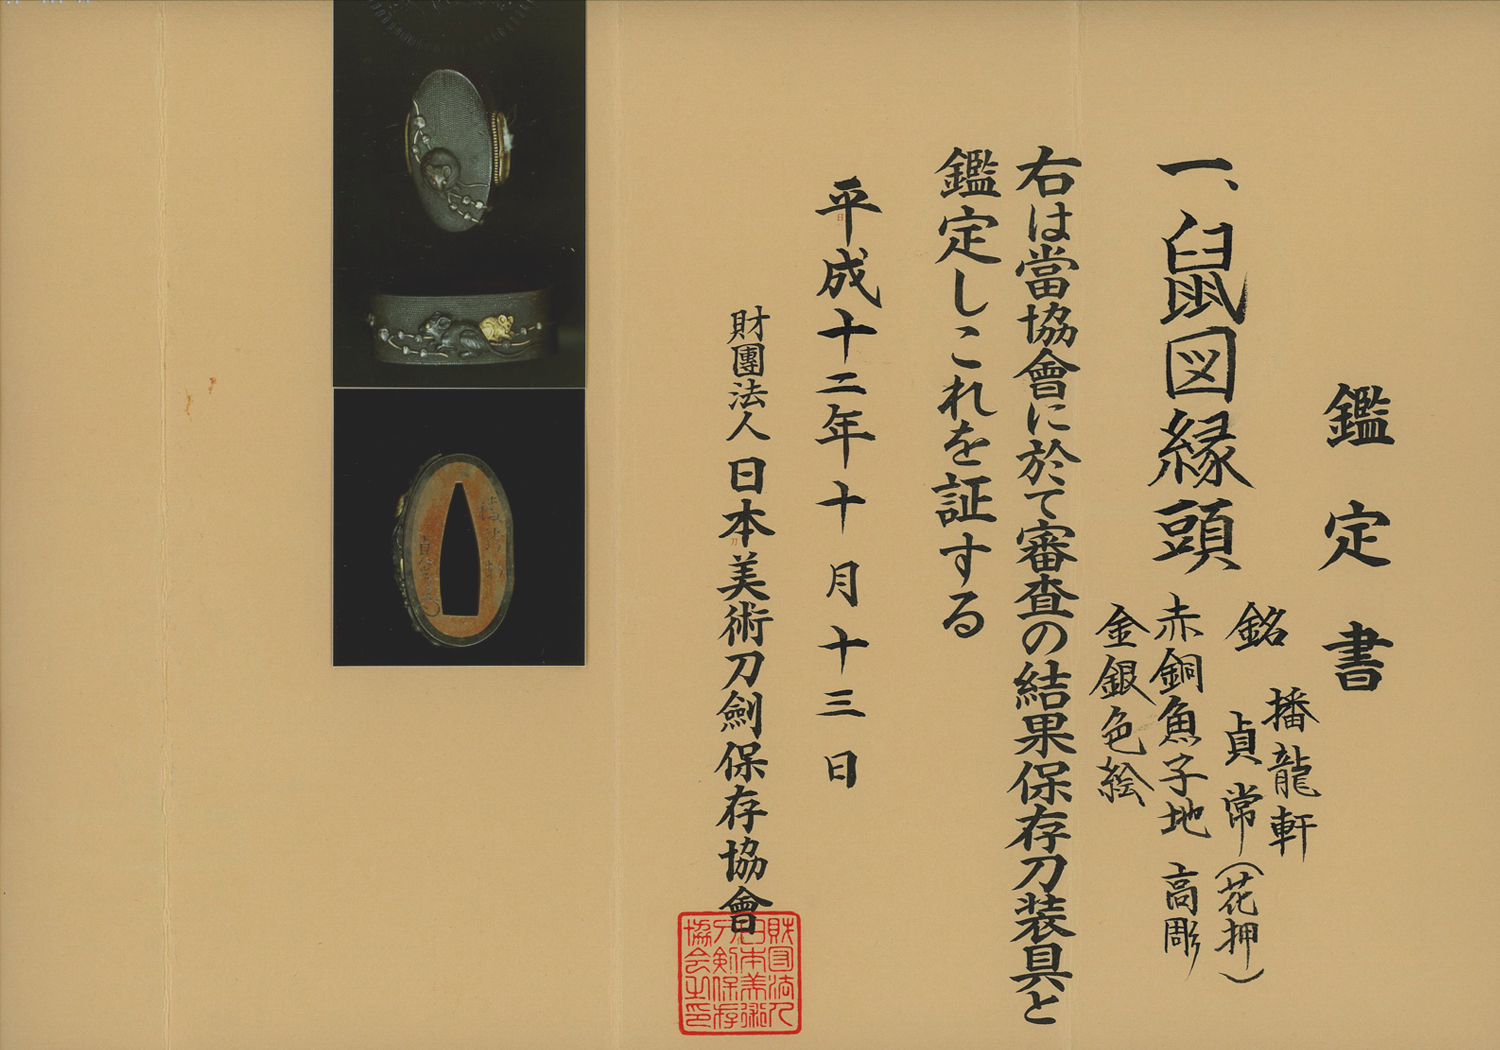 鑑定書
一、鼠図縁頭
銘 播龍軒
貞常(花押)
赤銅魚子地 高彫
金銀色絵
右は當協會に於て審査の結果保存刀装具と
鑑定しこれを証する
平成十二年十月十三日
財團法人日本美術刀劍保存協會
財団法人
日本美術
刀剣保存
協会之印